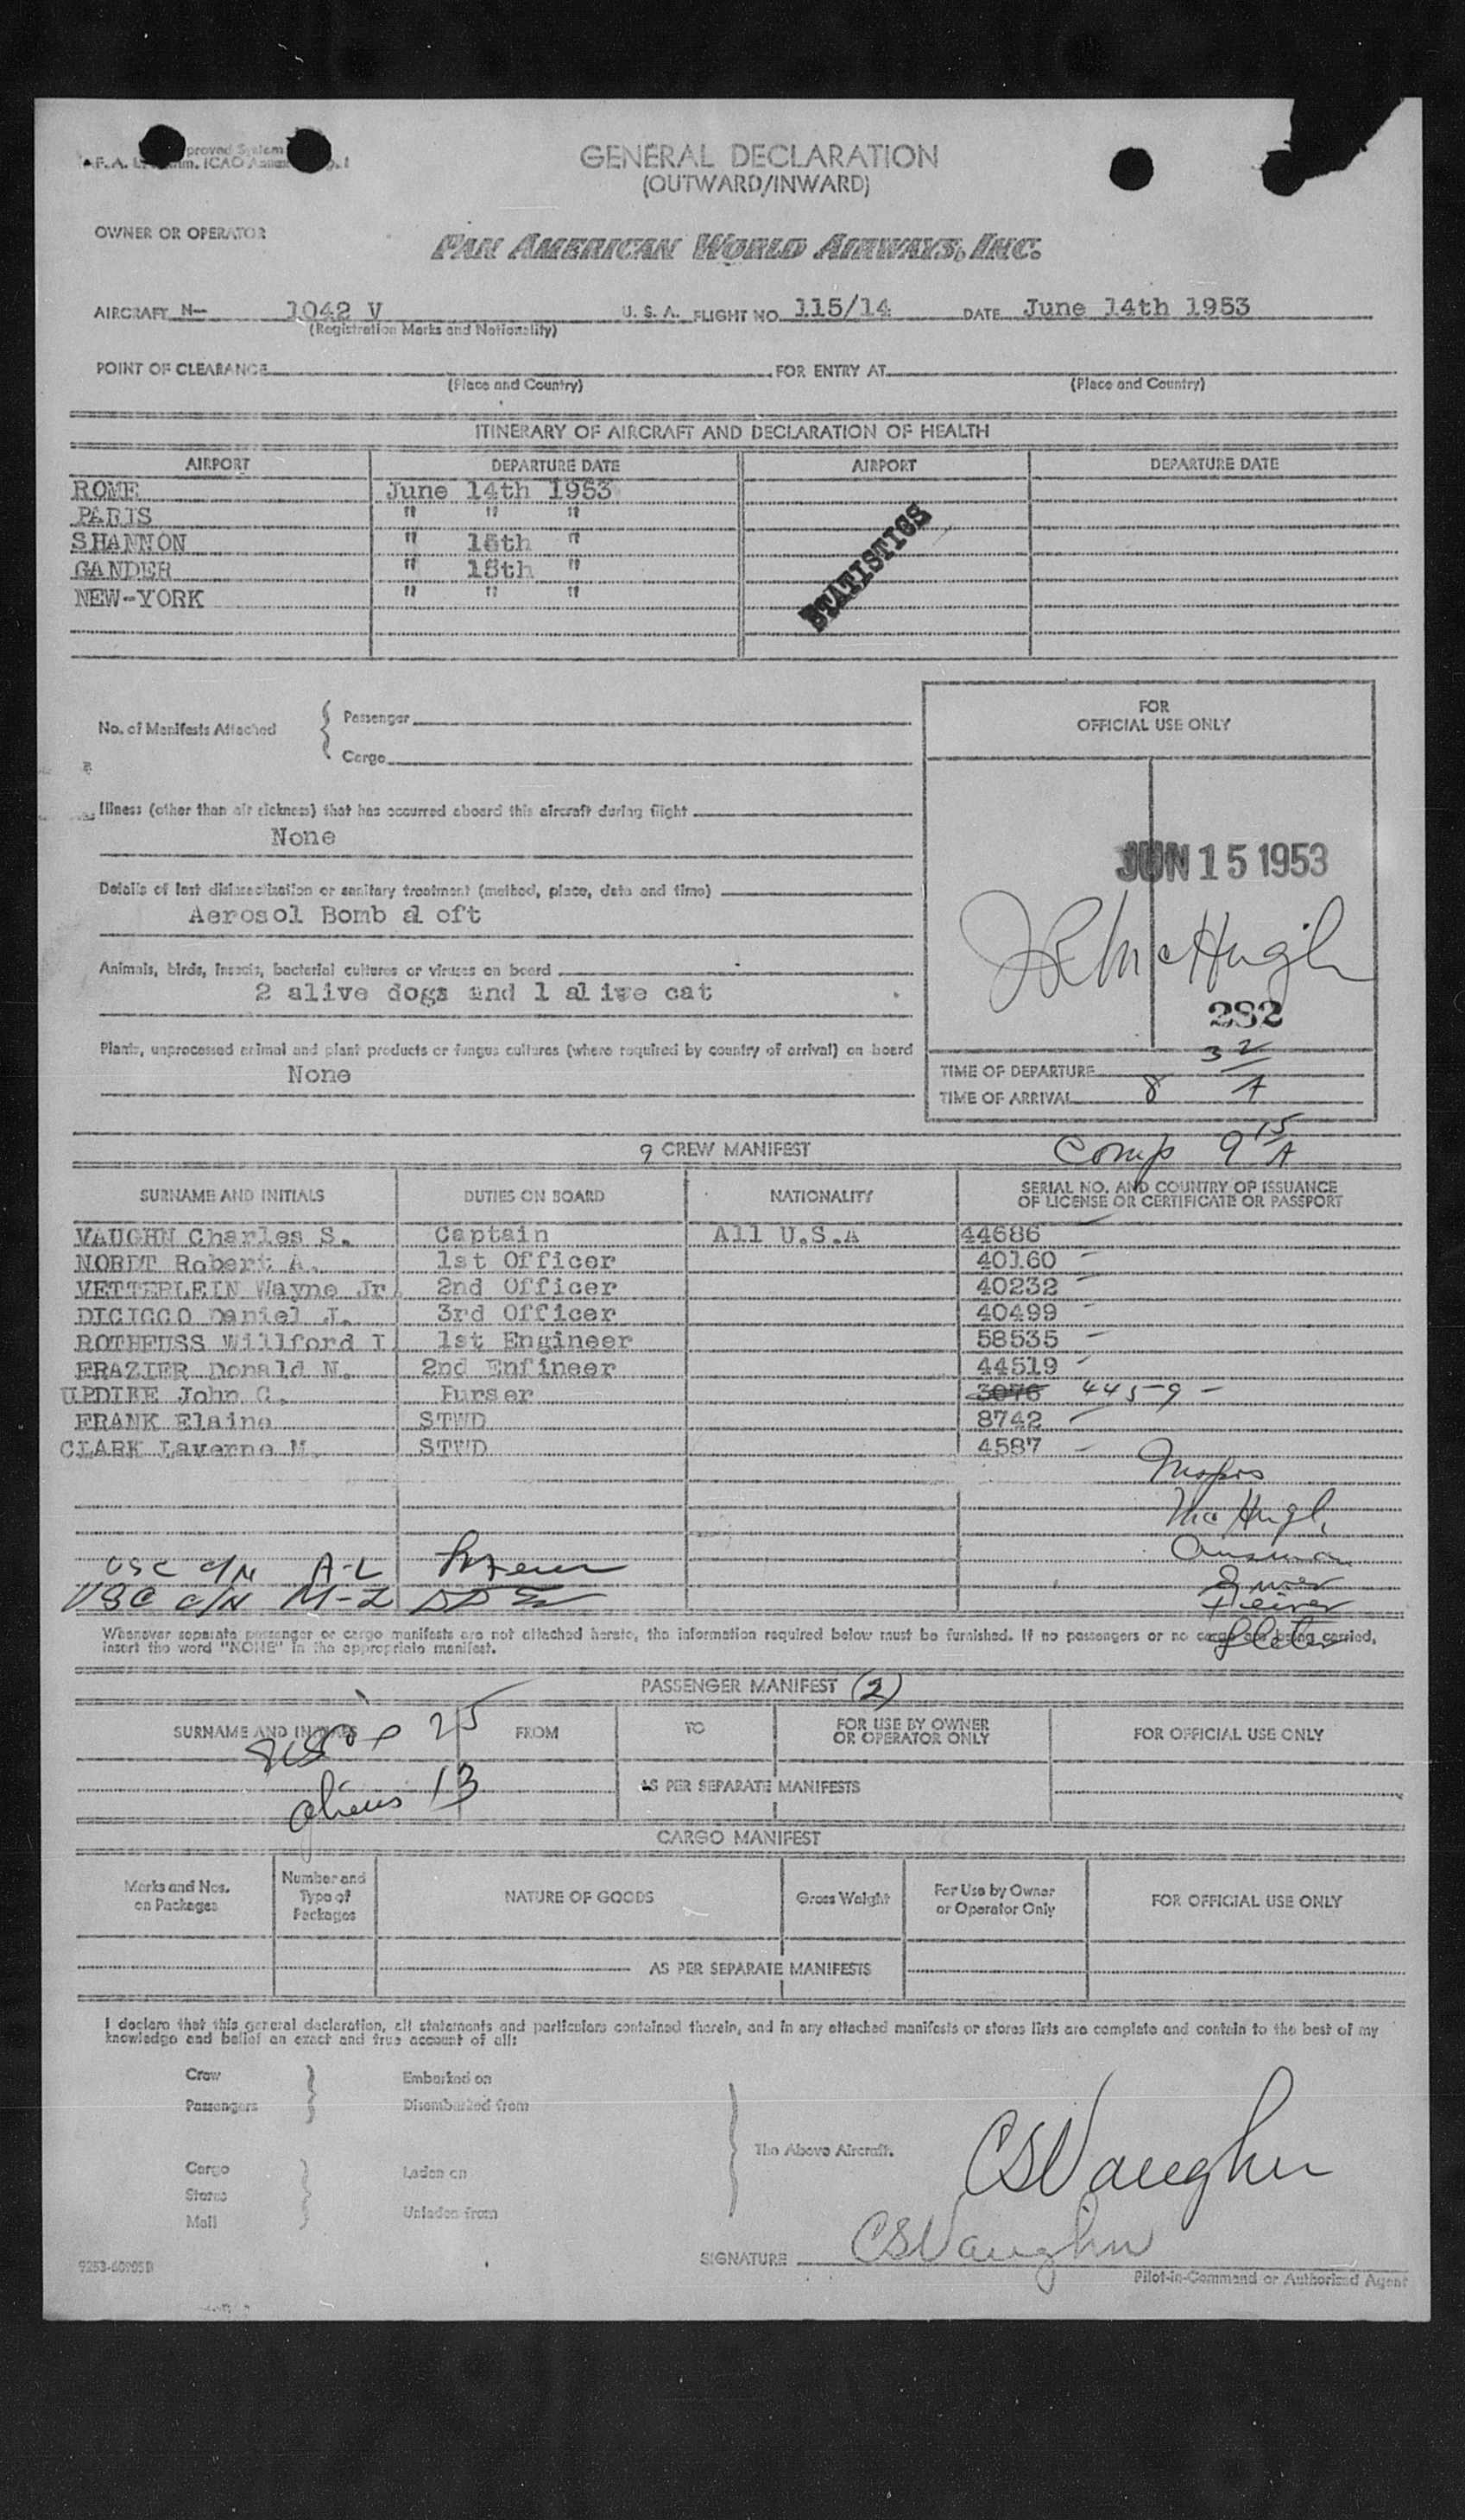 GENERAL DECLARATION
(OUTWARD/INWARD)
OWNER OR OPERATOR
PAN AMERICAN WORLD AIRWAYS, INC.
AIRCRAFT N- 1042 V U. S. A. FLIGHT NO. 115/14 DATE June 14th 1953
(Registration Marks and Nationality)
POINT OF CLEARANCE FOR ENTRY AT
(Place and Country) (Place and Country)
ITINERARY OF AIRCRAFT AND DECLARATION OF HEALTH
AIRPORT DEPARTURE DATE AIRPORT DEPARTURE DATE
ROME June 14th 1953
PARIS " " "
SHANNON " 15th "
GANDER " 15th "
NEW-YORK " " "
STATISTICS
No. of Manifests Attached { Passenger
Cargo
FOR
OFFICIAL USE ONLY
Illness (other than air sickness) that has occurred aboard this aircraft during flight
None
JUN 15 1953
Details of last disinsectisation or sanitary treatment (method, place, date and time)
Aerosol Bomb al oft
McHugh
Animals, birds, insects, bacterial cultures or viruses on board
2 alive dogs and 1 alive cat
282
Plants, unprocessed animal and plant products or fungus cultures (where required by country of arrival) on board
None
TIME OF DEPARTURE
TIME OF ARRIVAL 8 32 A
Comp 9 15 A
9 CREW MANIFEST
SURNAME AND INITIALS DUTIES ON BOARD NATIONALITY SERIAL NO. AND COUNTRY OF ISSUANCE
OF LICENSE OR CERTIFICATE OR PASSPORT
VAUGHN Charles S. Captain All U.S.A 44686
NORDT Robert A. 1st Officer 40160
VETTERLEIN Wayne Jr 2nd Officer 40232
DICICCO Daniel J. 3rd Officer 40499
ROTHFUSS Willford I 1st Engineer 58535
FRAZIER Donald N. 2nd Enfineer 44519
UPDIKE John C. Purser 3076 4459
FRANK Elaine STWD 8742
CLARK Laverne M. STWD 4587
Insprs
McHugh
USC c/N A-L
USC c/N M-Z
Whenever separate passenger or cargo manifests are not attached hereto, the information required below must be furnished. If no passengers or no cargo are being carried,
insert the word "NONE" in the appropriate manifest.
PASSENGER MANIFEST (2)
SURNAME AND INITIALS FROM TO FOR USE BY OWNER
OR OPERATOR ONLY FOR OFFICIAL USE ONLY
25
AS PER SEPARATE MANIFESTS
aliens 13
CARGO MANIFEST
Marks and Nos.
on Packages Number and
Type of
Packages NATURE OF GOODS Gross Weight For Use by Owner
or Operator Only FOR OFFICIAL USE ONLY
AS PER SEPARATE MANIFESTS
I declare that this general declaration, all statements and particulars contained therein, and in any attached manifests or stores lists are complete and contain to the best of my
knowledge and belief an exact and true account of all:
Crew Embarked on
Passengers Disembarked from
The Above Aircraft.
Cargo Laden on
Stores
Mail Unladen from
CSVaughn
SIGNATURE CSVaughn
Pilot-in-Command or Authorised Agent